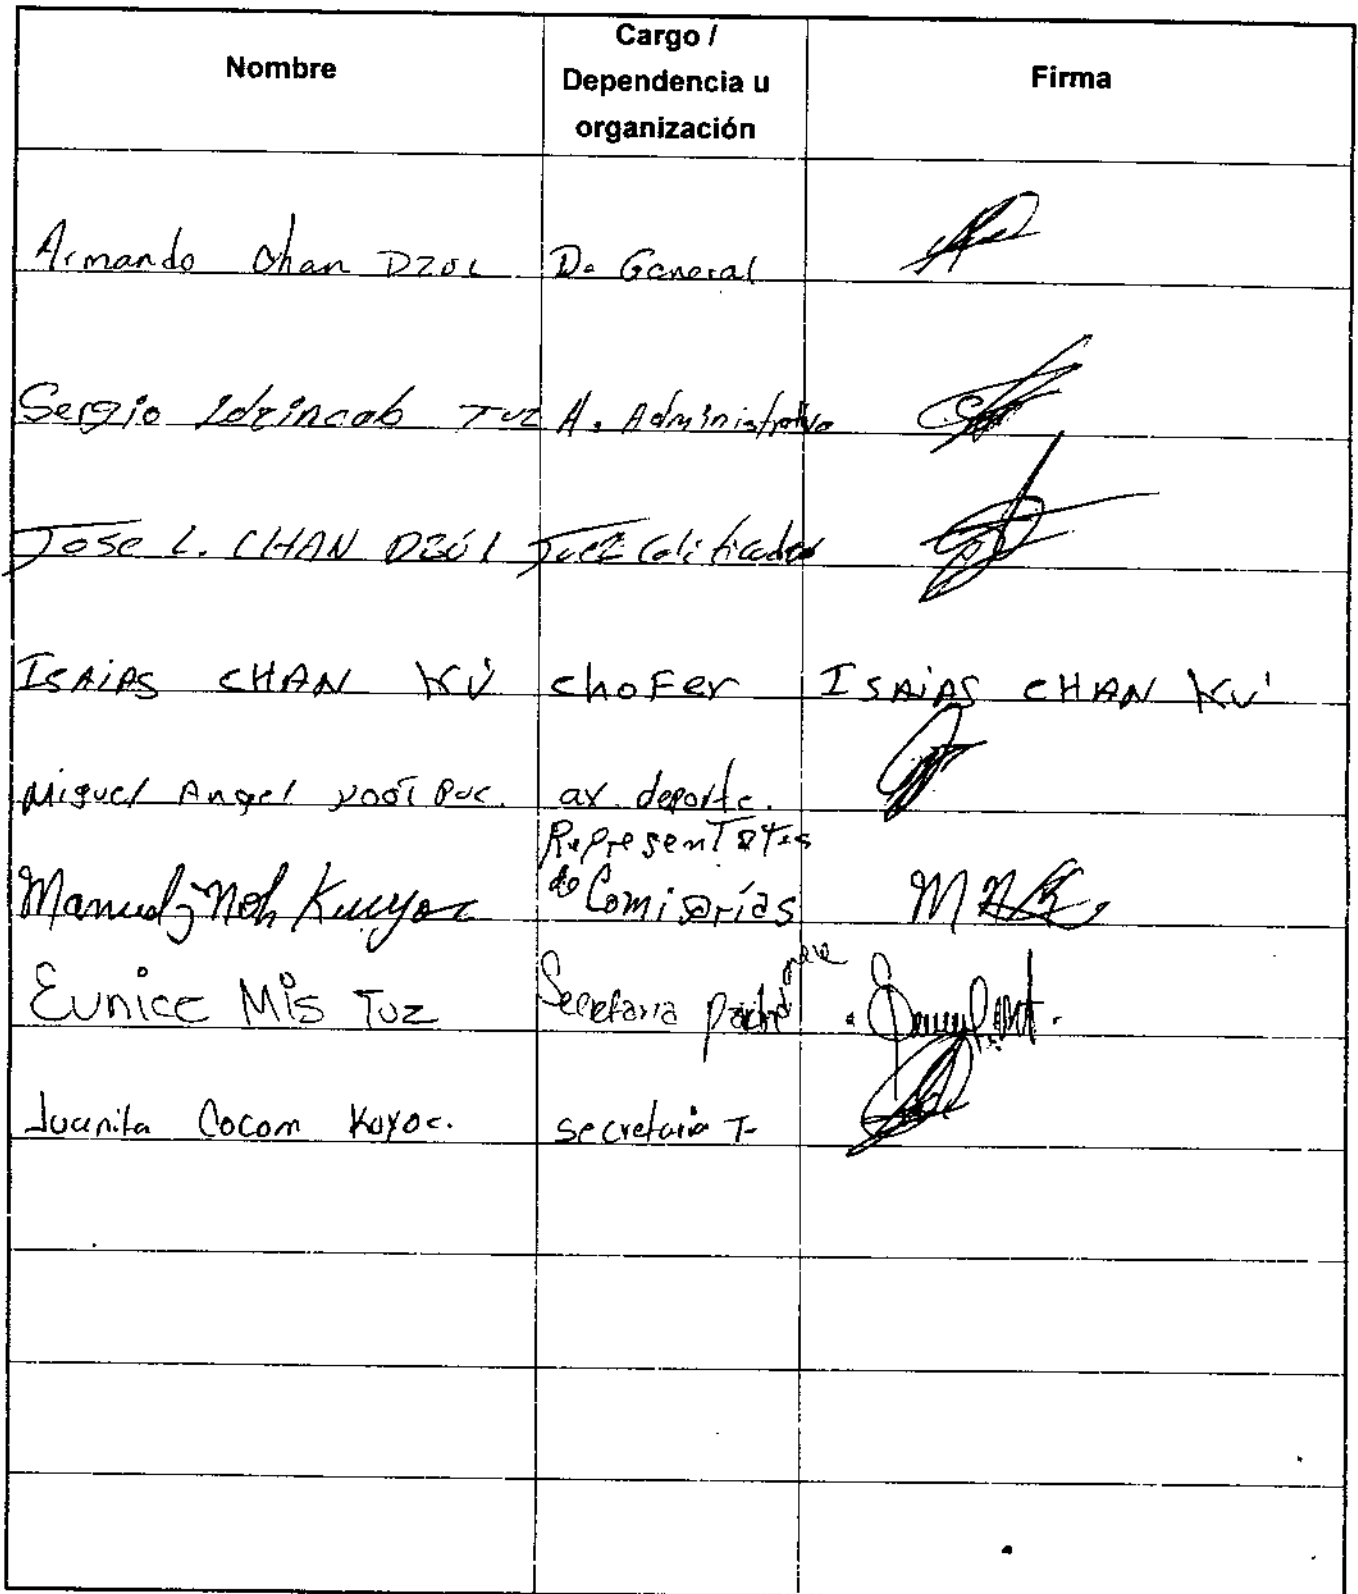 Nombre
Cargo /
Dependencia u
organización
Firma
Armando Chan DZUL D. General
Sergio Tuz A. Administrativo
Jose L. CHAN DZÚL Juez Calificador
ISAIAS CHAN KÚ choFer ISAIAS CHAN KÚ
Miguel Angel Puc. ax deporte.
Representates
de Comisarías
Manuel J Noh Kuuyoc
Eunice Mis Tuz Secretaria
Juanita Cocom Kuyoc. secretaria T-